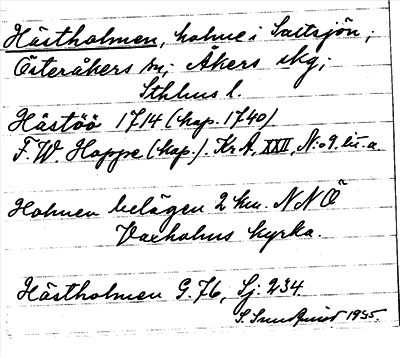 Hästholmen, holme i Saltsjön,
Österåkers sn, Åkers skg,
Sthlms l.
Hästöö 1714 (kop. 1740)
F. W Hoppe (kop.). KrA, XXII, N:o 9, lit. a.
Holmen belägen 2 km. NNÖ
Vaxholms kyrka.
Hästholmen G. 76, Sj. 234.
S. Sundqvist 1935.